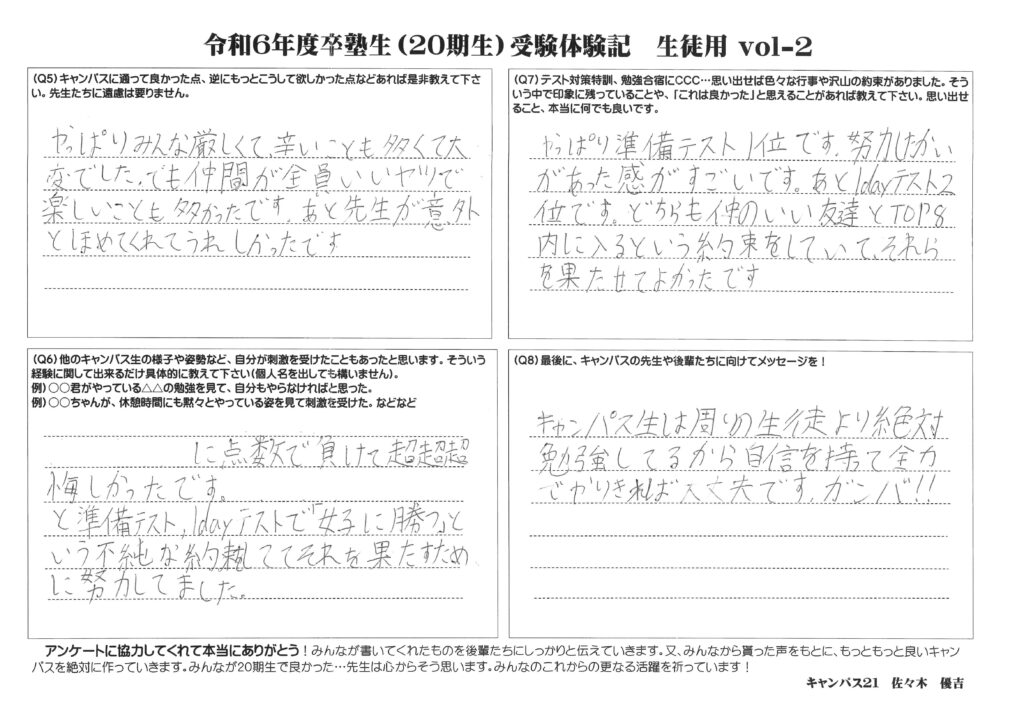 令和6年度卒塾生(20期生)受験体験記　生徒用 vol-2
(Q5)キャンパスに通って良かった点、逆にもっとこうして欲しかった点などあれば是非教えて下さ
い。先生たちに遠慮は要りません。
やっぱりみんな厳しくて、辛いことも多くて大
変でした。でも仲間が全員いいヤツで
楽しいことも多かったです。あと先生が意外
とほめてくれてうれしかったです
(Q7)テスト対策特訓、勉強合宿にCCC…思い出せば色々な行事や沢山の約束がありました。そう
いう中で印象に残っていることや、「これは良かった」と思えることがあれば教えて下さい。思い出せ
ること、本当に何でも良いです。
やっぱり準備テスト1位です。努力したかい
があった感がすごいです。あと1dayテスト2
位です。どちらも仲のいい友達とTOP8
内に入るという約束をしていて、それら
を果たせてよかったです
(Q6)他のキャンパス生の様子や姿勢など、自分が刺激を受けたこともあったと思います。そういう
経験に関して出来るだけ具体的に教えて下さい(個人名を出しても構いません)。
例)○○君がやっている△△の勉強を見て、自分もやらなければと思った。
例)○○ちゃんが、休憩時間にも黙々とやっている姿を見て刺激を受けた。などなど
に点数で負けて超超超
悔しかったです。
と準備テスト,1dayテストで「女子に勝つ」と
いう不純な約束しててそれを果たすため、
に努力してました。
(Q8)最後に、キャンパスの先生や後輩たちに向けてメッセージを!
キャンパス生は周りの生徒より絶対
勉強してるから自信を持って全力
でやりきれば大丈夫です。ガンバ!!
アンケートに協力してくれて本当にありがとう!みんなが書いてくれたものを後輩たちにしっかりと伝えていきます。又、みんなから貰った声をもとに、もっともっと良いキャン
パスを絶対に作っていきます。みんなが20期生で良かった…先生は心からそう思います。みんなのこれからの更なる活躍を祈っています!
キャンパス21　佐々木　優吉